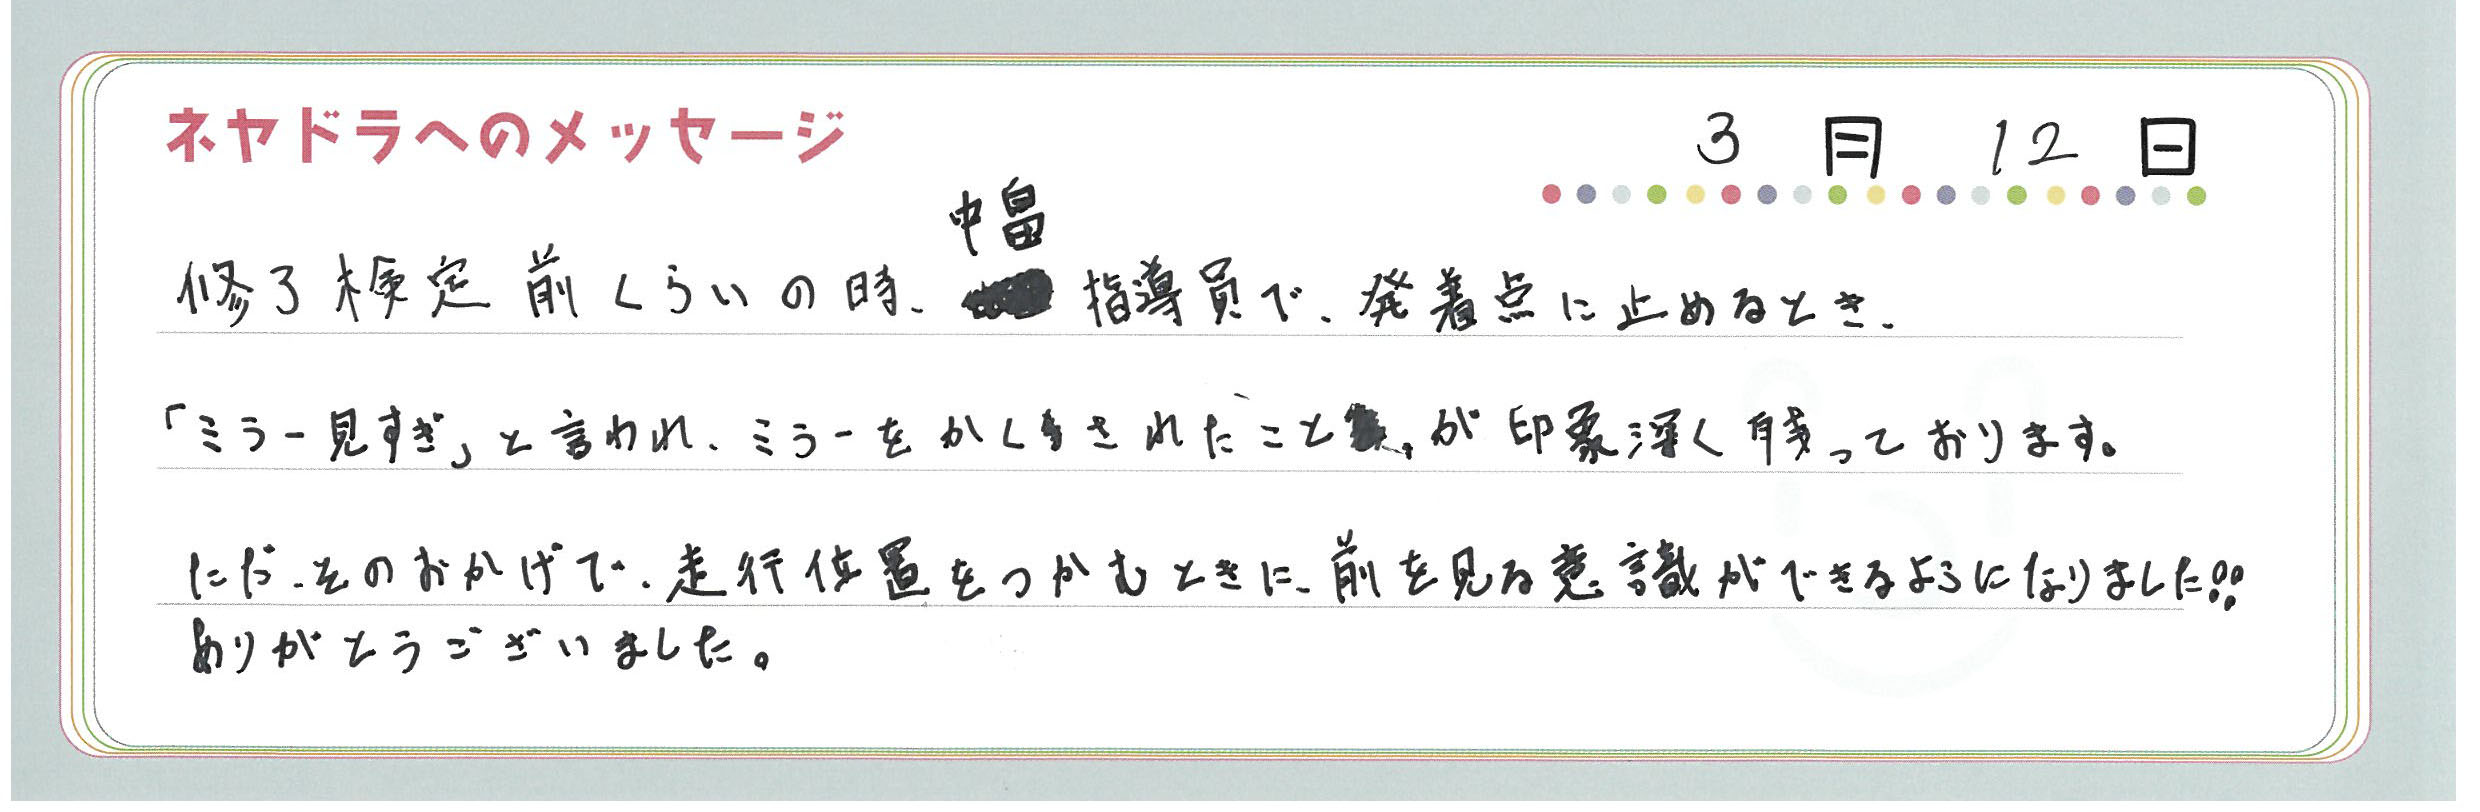 ネヤドラへのメッセージ
3月12日
修了検定前くらいの時、中畠指導員で、発着点に止めるとき、
「ミラー見すぎ」と言われ、ミラーをかくされたことが印象深く残っております。
ただ、そのおかげで、走行位置をつかむときに、前を見る意識ができるようになりました!!
ありがとうございました。